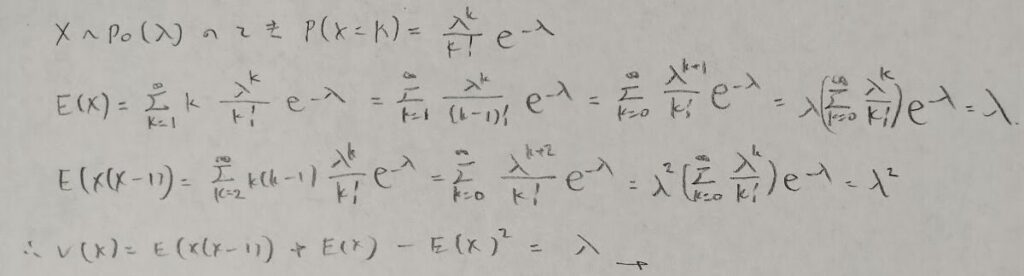 X ~ Po(λ) のとき P(X=k) = λ^k/k! e^-λ
E(X) = Σ_{k=1}^∞ k λ^k/k! e^-λ = Σ_{k=1}^∞ λ^k/(k-1)! e^-λ = Σ_{k=0}^∞ λ^{k+1}/k! e^-λ = λ(Σ_{k=0}^∞ λ^k/k!)e^-λ = λ.
E(X(X-1)) = Σ_{k=2}^∞ k(k-1) λ^k/k! e^-λ = Σ_{k=0}^∞ λ^{k+2}/k! e^-λ = λ^2(Σ_{k=0}^∞ λ^k/k!)e^-λ = λ^2
∴ V(X) = E(X(X-1)) + E(X) - E(X)^2 = λ →